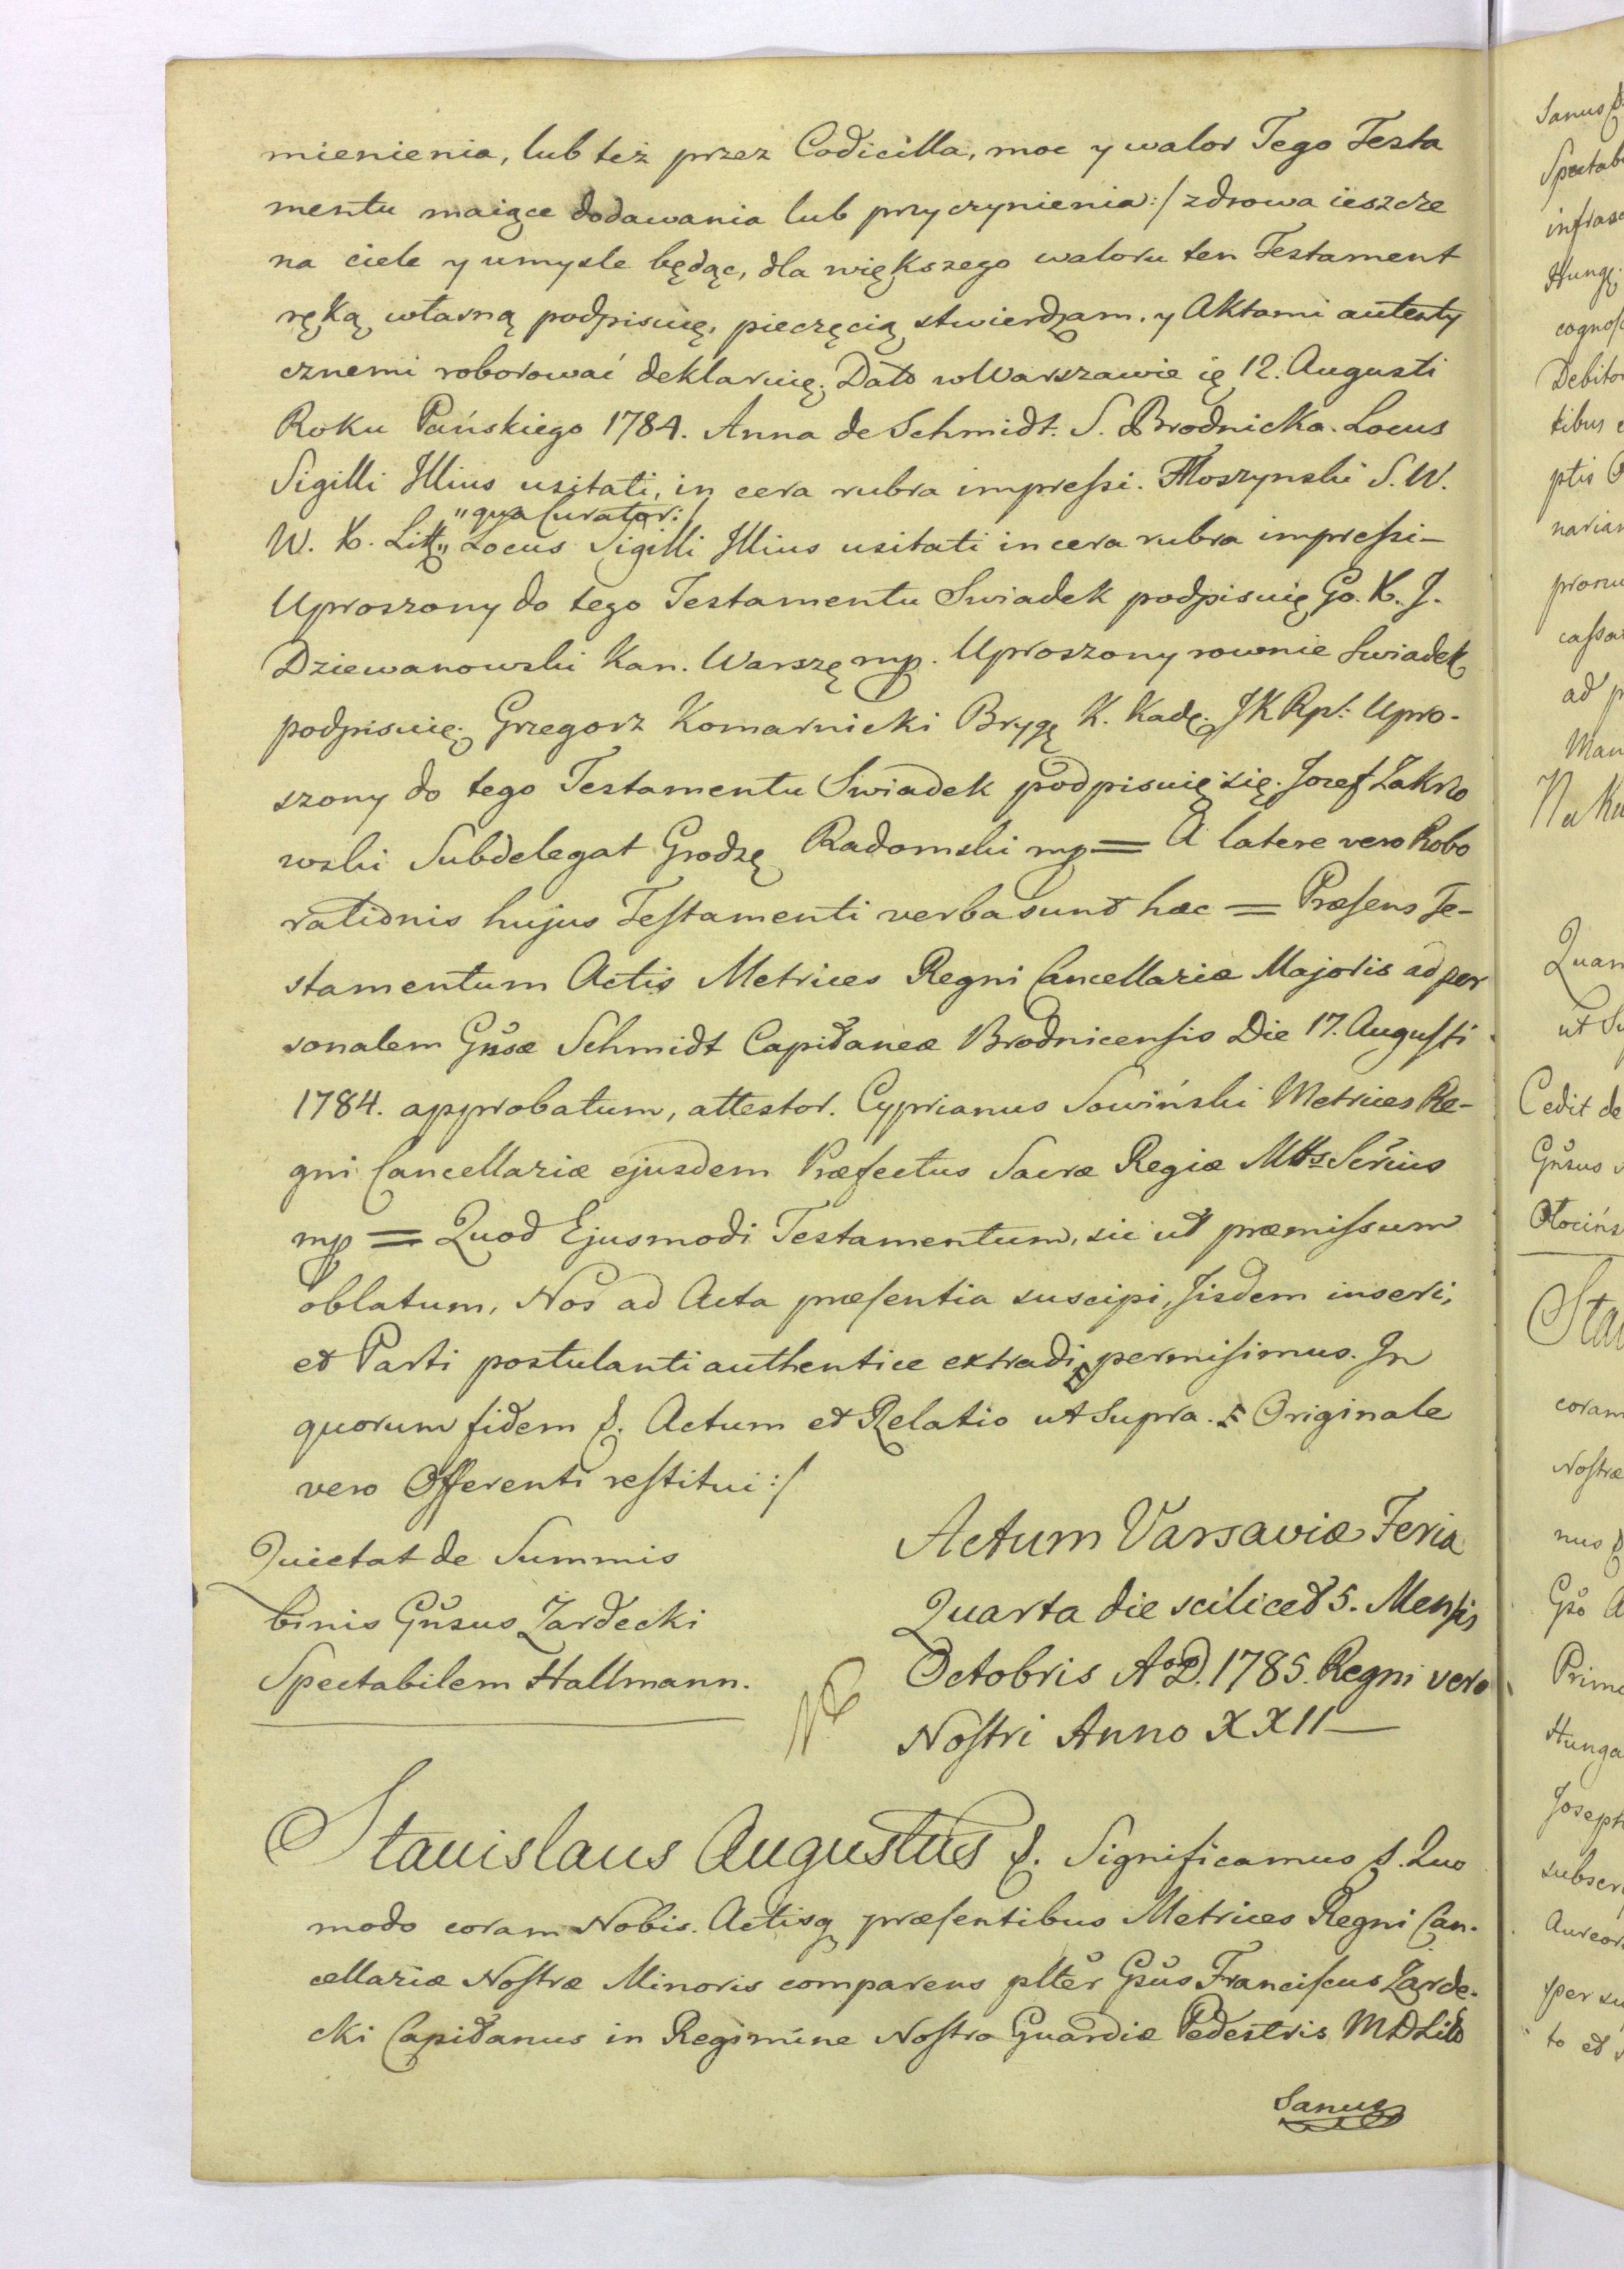 mienienia, lub też przez Codicilla, moc y walor Tego Testa
mentu maiące dodawania lub przyczynienia:/ zdrowa ieszcze
na ciele y umysle będąc, dla większego waloru ten Testament
ręką własną podpisuię, pieczęcią stwierdzam, y Aktami autenty
cznemi roborować deklaruię. Dato w Warszawie ię 12. Augusti
Roku Pańskiego 1784. Anna de Schmidt. S. Brodnicka. Locus
Sigilli Illius usitati, in cera rubra impressi. FMoszynski S. W.
"qua Curator:/
W. X. Litt," Locus Sigilli Illius usitati in cera rubra impressi—
Uproszony do tego Testamentu Swiadek podpisuię Go. X. J.
Dziewanowski Kan. Warszę mp. Uproszony rownie Swiadek
podpisuię. Grzegorz Komarnicki Brygę K. Kadę. JK Rpt: Upro-
szony do tego Testamentu Swiadek podpisuię się. Jozef Zakrzo
wski Subdelegat Grodzę Radomski mp = A latere vero Robo
rationis hujus Testamenti verba sunt hæc = Præsens Te-
stamentum Actis Metrices Regni Cancellariæ Majoris ad per
sonalem Gnsæ Schmidt Capitaneæ Brodnicensis Die 17. Augusti
1784. approbatum, attestor. Cyprianus Sowiński Metrices Re-
gni Cancellariæ ejusdem Præfectus Sacræ Regiæ Mttis Scrius
mp = Quod Ejusmodi Testamentum, sic ut præmissum
oblatum, Nos ad Acta præsentia suscipi, Iisdem inseri,
et Parti postulanti authentice extradi permisimus. In
quorum fidem &. Actum et Relatio ut Supra. Originale
vero Offerenti restitui:/
Quietat de Summis
binis Gnsus Zardecki
Spectabilem Hallmann.
Actum Varsaviæ Feria
Quarta die scilicet 5. Mensis
Octobris Ao D. 1785. Regni vero
Nostri Anno XXII—
Stanislaus Augustus &. Significamus &. Quo
modo coram Nobis. Actisq præsentibus Metrices Regni Can-
cellariæ Nostræ Minoris comparens plter Gsus Franciscus Zarde-
cki Capitanus in Regimine Nostro Guardiæ Pedestris MD Litt
Sanus
Sanus
Cedit de
Gnsus
coram
Nostræ
Hunga
Joseph
to et